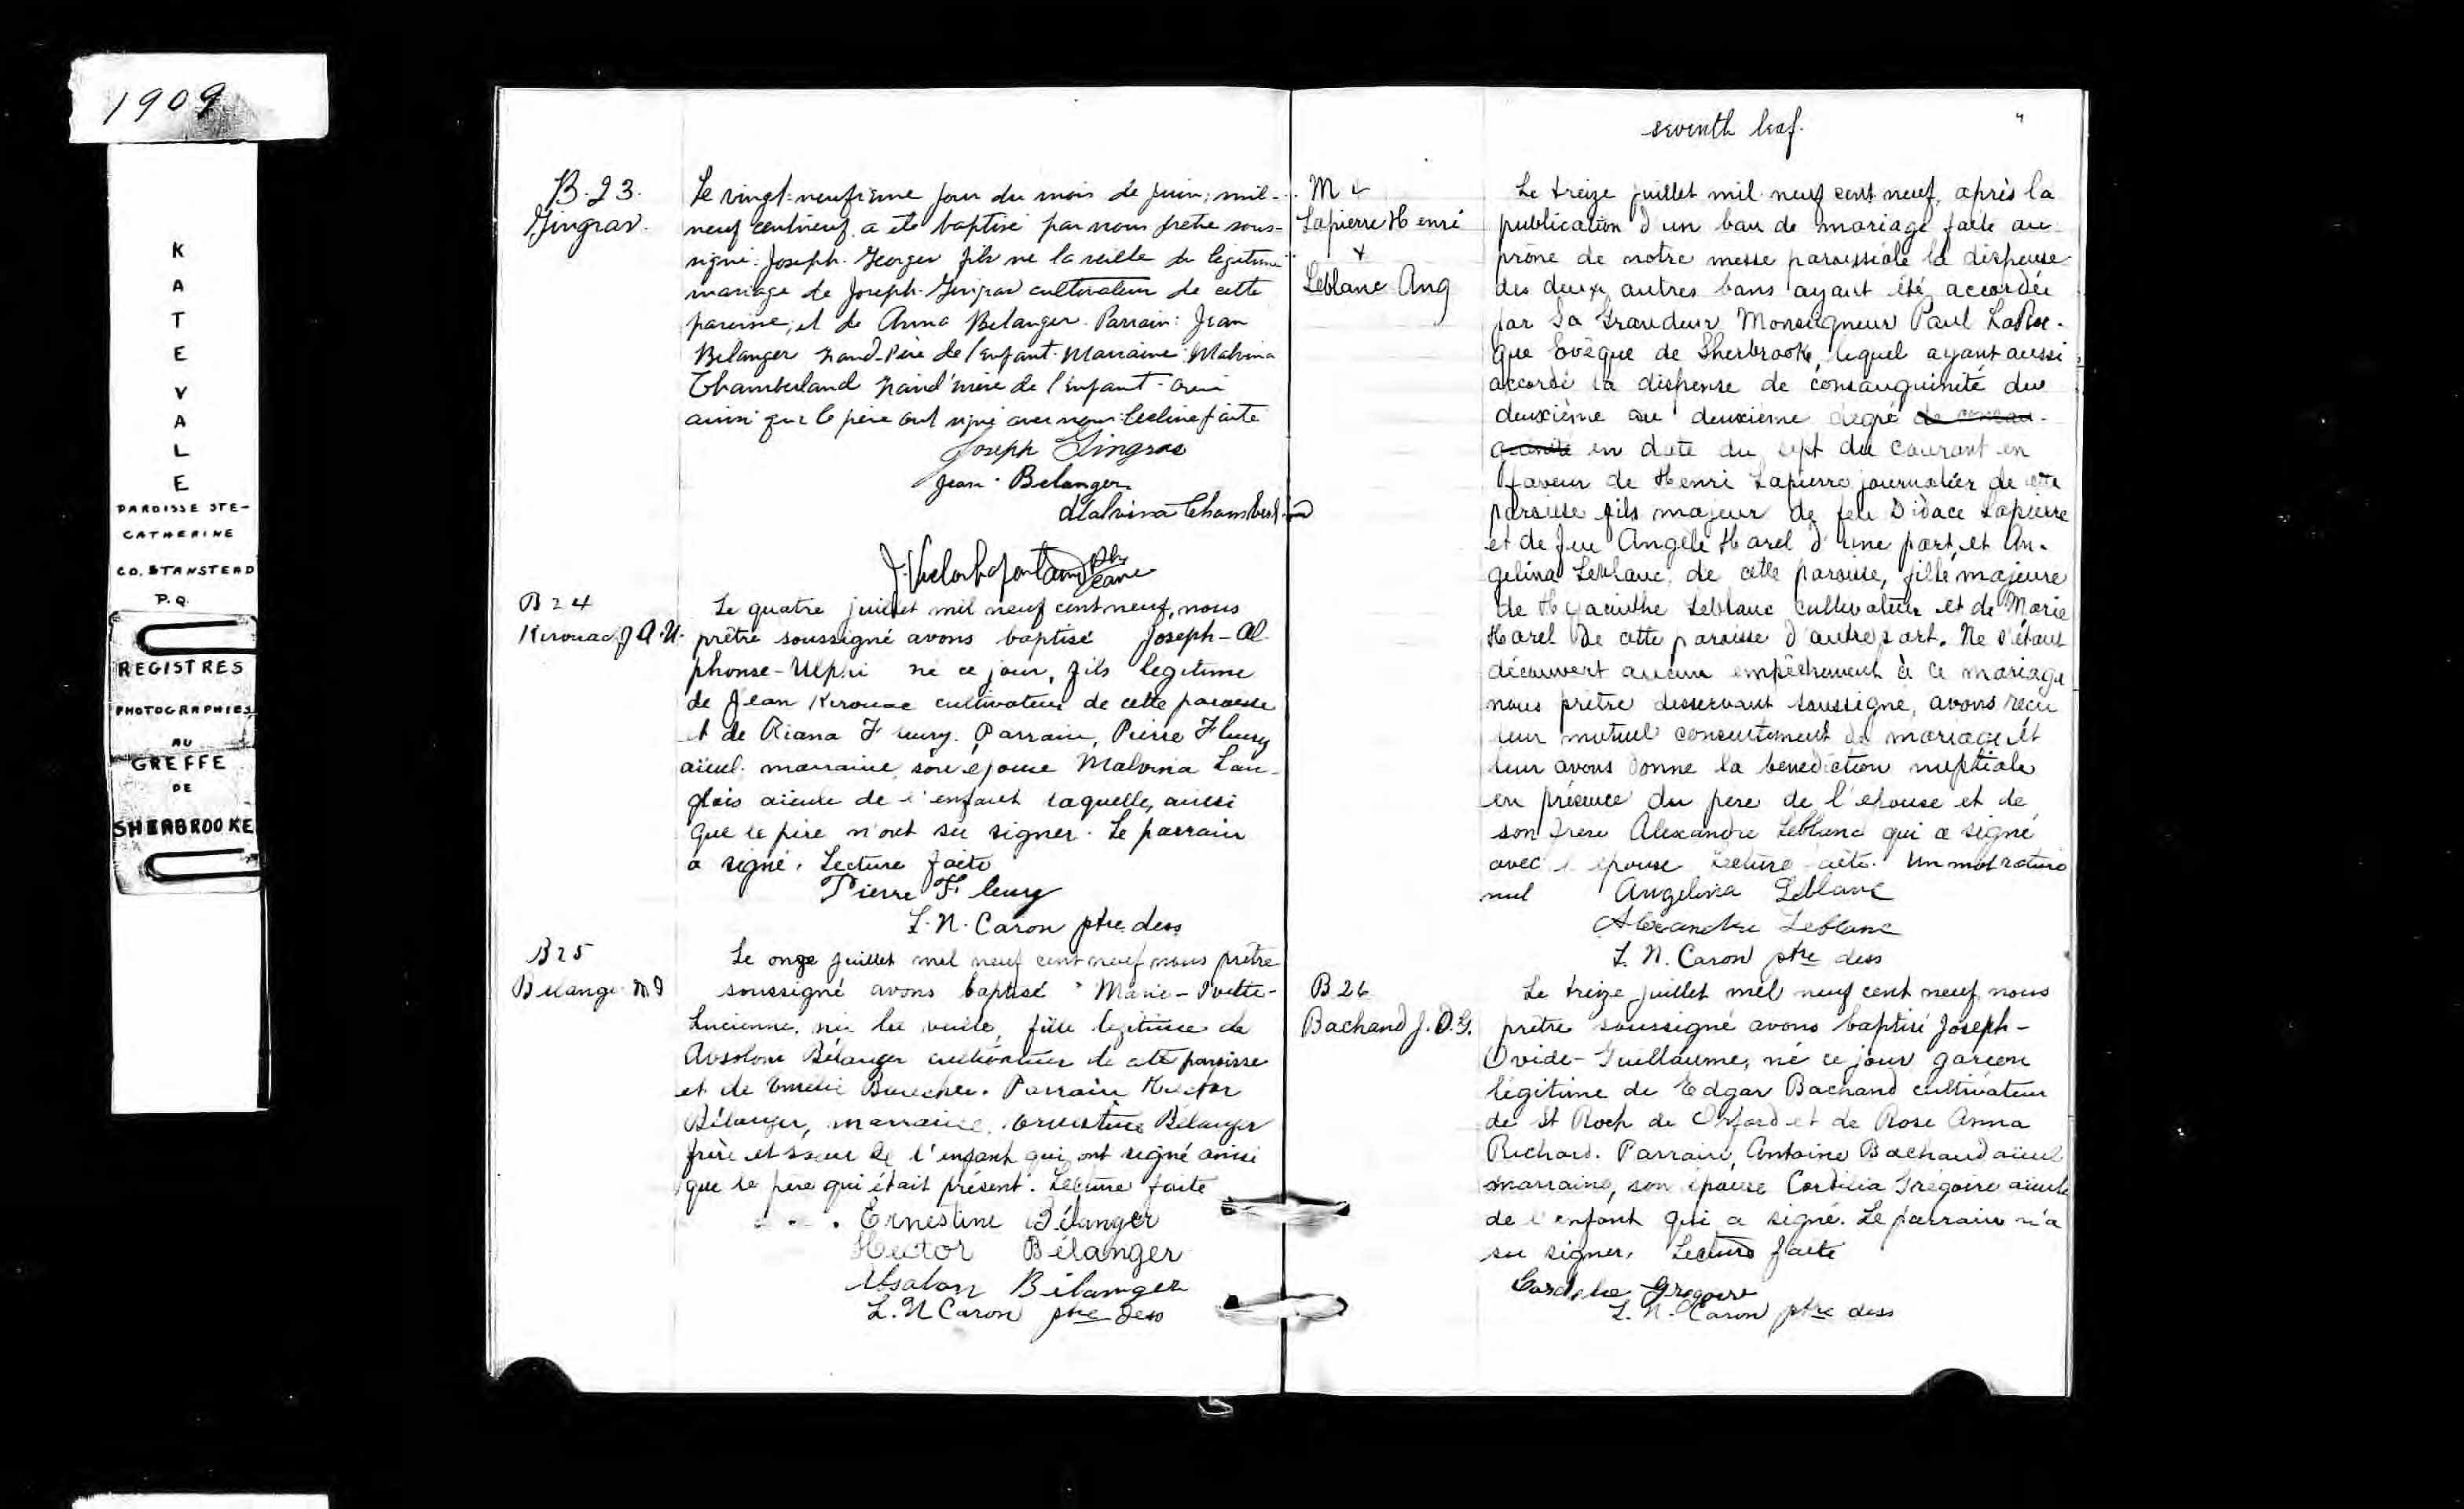 1909
K
A
T
E
V
A
L
E
PAROISSE STE-
CATHERINE
CO. STANSTEAD
P.Q.
REGISTRES
PHOTOGRAPHIES
AU
GREFFE
DE
SHERBROOKE
B. 23.
Gingras.
Le vingt-neufième jour du mois de juin, mil-
neuf cent neuf a été baptisé par nous prêtre sous-
signé: Joseph-Georges fils né la veille du légitime
mariage de Joseph Gingras cultivateur de cette
paroisse, et de Anna Belanger. Parrain: Jean
Belanger grand-père de l'enfant. Marraine: Malvina
Chamberland grand'mère de l'enfant
ainsi que le père ont signé avec nous. Lecture faite
Joseph Gingras
Jean Belanger
Malvina Chamberland
B 24
Kerouac J A. U.
Le quatre juillet mil neuf cent neuf, nous
prêtre soussigné avons baptisé Joseph-Al
phonse-Ulpri né ce jour, fils legitime
de Jean Kerouac cultivateur de cette paroisse
et de Riana Fleury. Parrain, Pierre Fleury
aïeul. marraine, son epouse Malvina Lan-
glois aïeule de l'enfant laquelle, ainsi
que le père n'ont su signer. Le parrain
a signé. Lecture faite
Pierre Fleury
L. N. Caron ptre dess
B 25
Belanger M I
Le onze juillet mil neuf cent neuf nous prêtre
soussigné avons baptisé Marie-Ivette-
Lucienne, née la veille, fille legitime de
Absolom Bélanger cultivateur de cette paroisse
et de Emélie Boucher. Parrain Hector
Bélanger, marraine, Ernestine Bélanger
frère et sœur de l'enfant qui ont signé ainsi
que le père qui était présent. Lecture faite
Ernestine Bélanger
Hector Bélanger
Absalon Bélanger
L. N Caron ptre dess
seventh leaf.
M 4
Lapierre Henri
&
Leblanc Ang
Le treize juillet mil neuf cent neuf, après la
publication d'un ban de mariage faite au
prône de notre messe paroissiale la dispense
des deux autres bans ayant été accordée
par Sa Grandeur Monseigneur Paul LaRoc-
que Evêque de Sherbrooke, lequel ayant aussi
accordé la dispense de consanguinité du
deuxième au deuxième degré de consan-
guinité en date du sept du courant en
faveur de Henri Lapierre journalier de cette
paroisse fils majeur de feu Didace Lapierre
et de feue Angèle Harel d'une part, et An-
gelina Leblanc, de cette paroisse, fille majeure
de Hyacinthe Leblanc cultivateur et de Marie
Harel de cette paroisse d'autre part. Ne s'étant
découvert aucun empêchement à ce mariage
nous prêtre desservant soussigné, avons reçu
leur mutuel consentement de mariage et
leur avons donné la bénédiction nuptiale
en présence du pere de l'epouse et de
son frere Alexandre Leblanc qui a signé
avec l'epouse Lecture faite. Un mot raturé
nul Angelina Leblanc
Alexandre Leblanc
L. N. Caron ptre dess
B 26
Bachand J. O. G.
Le treize juillet mil neuf cent neuf, nous
prêtre soussigné avons baptisé Joseph-
Ovide-Guillaume, né ce jour garçon
légitime de Edgar Bachand cultivateur
de St Roch de Orford et de Rose Anna
Richard. Parrain, Antoine Bachand aïeul
marraine, son épouse Cordélia Grégoire aïeule
de l'enfant qui a signé. Le parrain n'a
su signer. Lecture faite
Cordelie Gregoire
L. N. Caron ptre dess